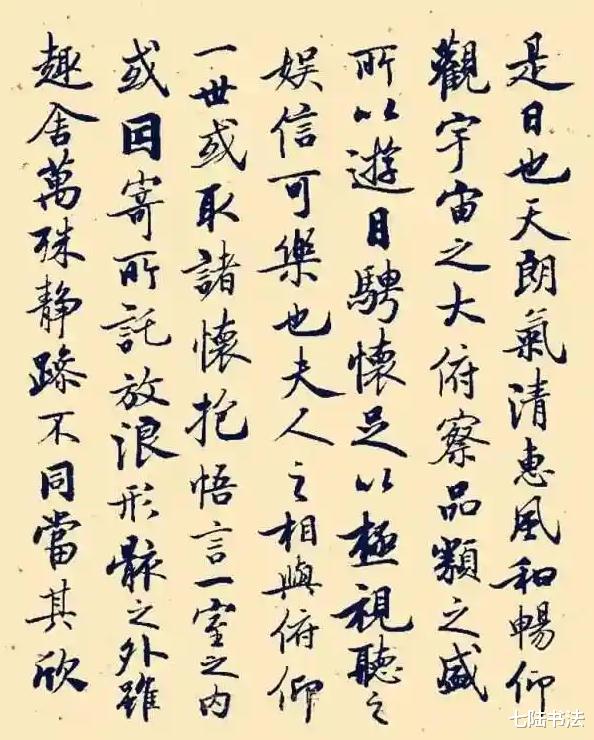 是日也天朗氣清惠風和暢仰
觀宇宙之大俯察品類之盛
所以遊目騁懷足以極視聽之
娱信可樂也夫人之相與俯仰
一世或取諸懷抱悟言一室之内
或因寄所託放浪形骸之外雖
趣舍萬殊静躁不同當其欣
七陆书法